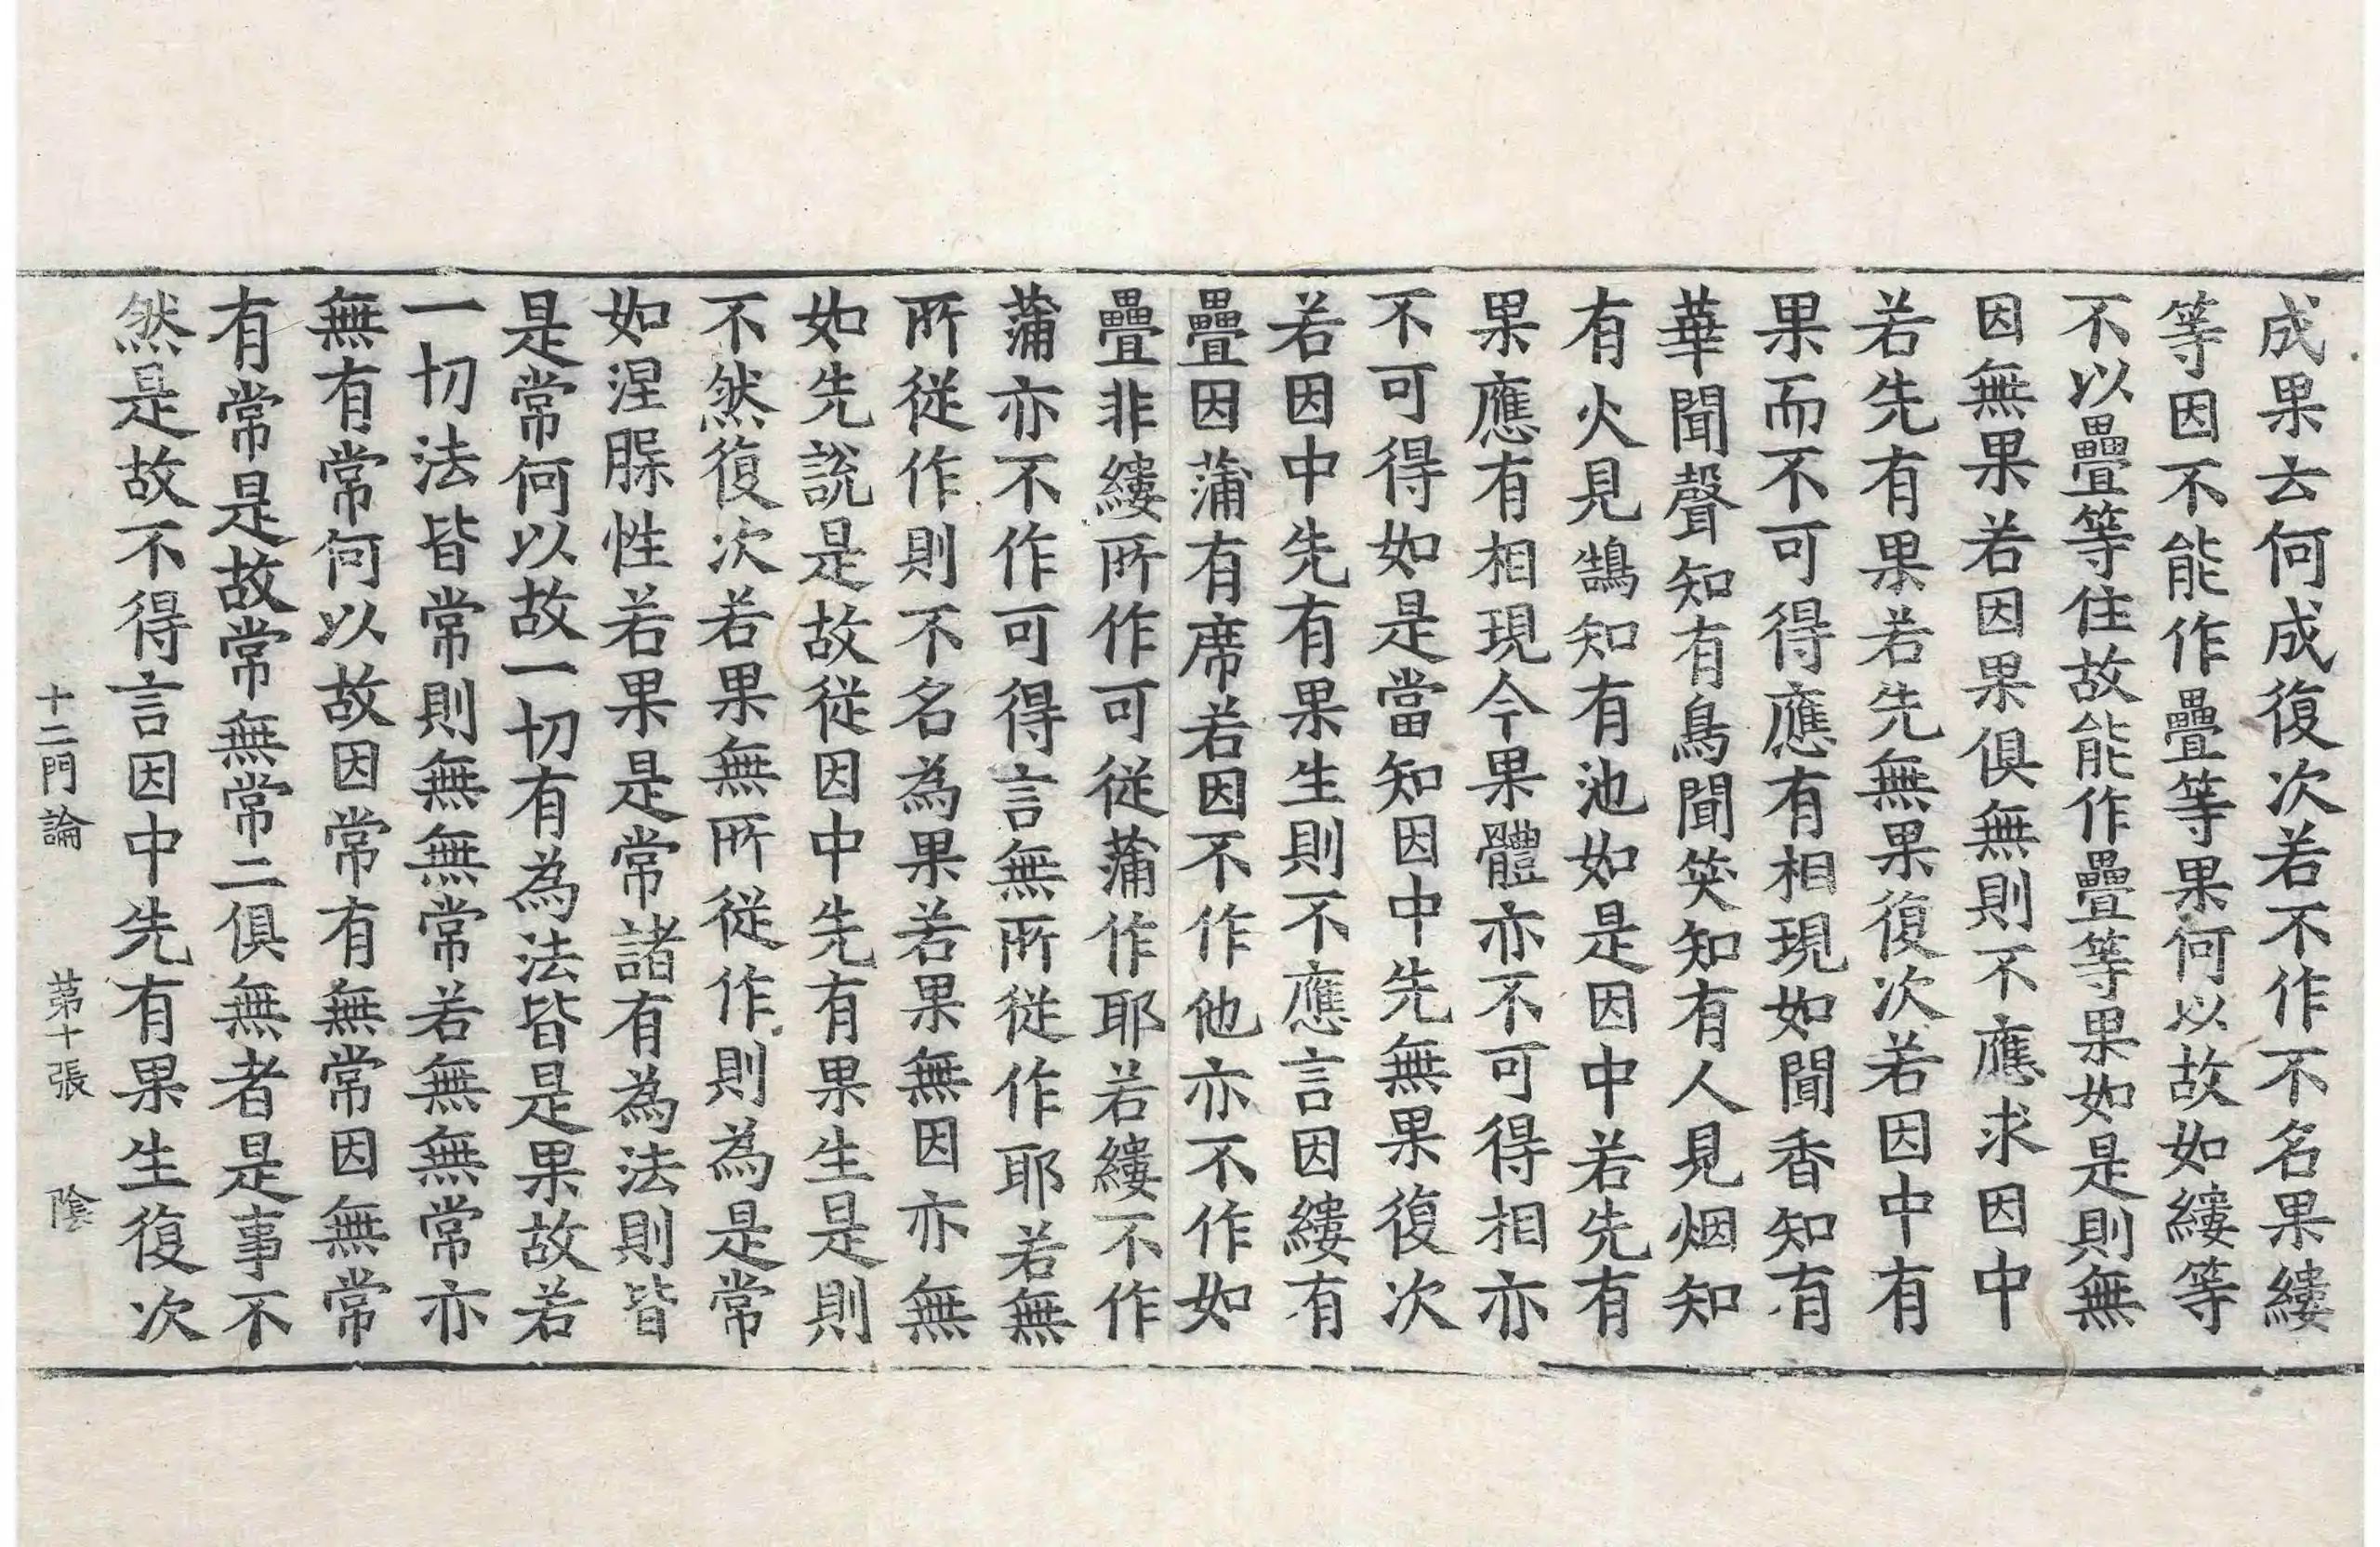 成果去何成復次若不作不名果縷
等因不能作疊等果何以故如縷等
不以疊等住故能作疊等果如是則無
因無果若因果俱無則不應求因中
若先有果若先無果復次若因中有
果而不可得應有相現如聞香知有
華聞聲知有鳥聞笑知有人見烟知
有火見鵠知有池如是因中若先有
果應有相現今果體亦不可得相亦
不可得如是當知因中先無果復次
若因中先有果生則不應言因縷有
疊因蒲有席若因不作他亦不作如
疊非縷所作可從蒲作耶若縷不作
蒲亦不作可得言無所從作耶若無
所從作則不名為果若果無因亦無
如先說是故從因中先有果生是則
不然復次若果無所從作則為是常
如涅槃性若果是常諸有為法則皆
是常何以故一切有為法皆是果故若
一切法皆常則無無常若無無常亦
無有常何以故因常有無常因無常
有常是故常無常二俱無者是事不
然是故不得言因中先有果生復次
十二門論　第十張　陰